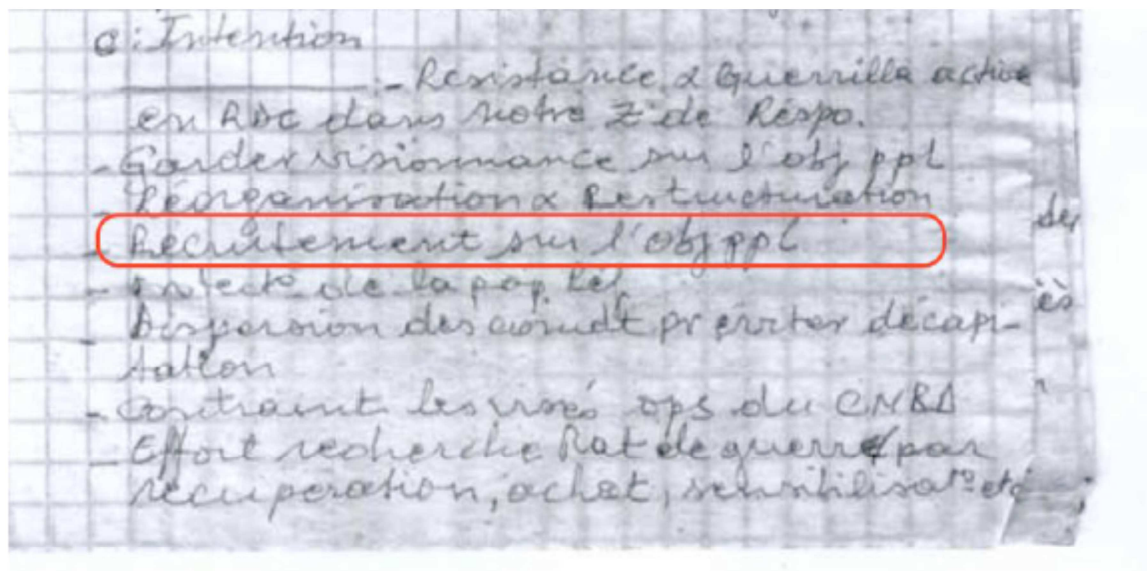 C: Intention
:- Résistance & Guerrilla active
en RDC dans notre Z de Réspo.
- Garder visionnance sur l'obj ppl
- Réorganisation & Restructuration
- Recrutement sur l'obj ppl
de la pop Réf
- Dispersion des comdt pr eviter décapi-
tation
- contraint les ops du CNRD
- Effort recherche Mat de guerre par
récuperation, achat, sensibilisat° etc